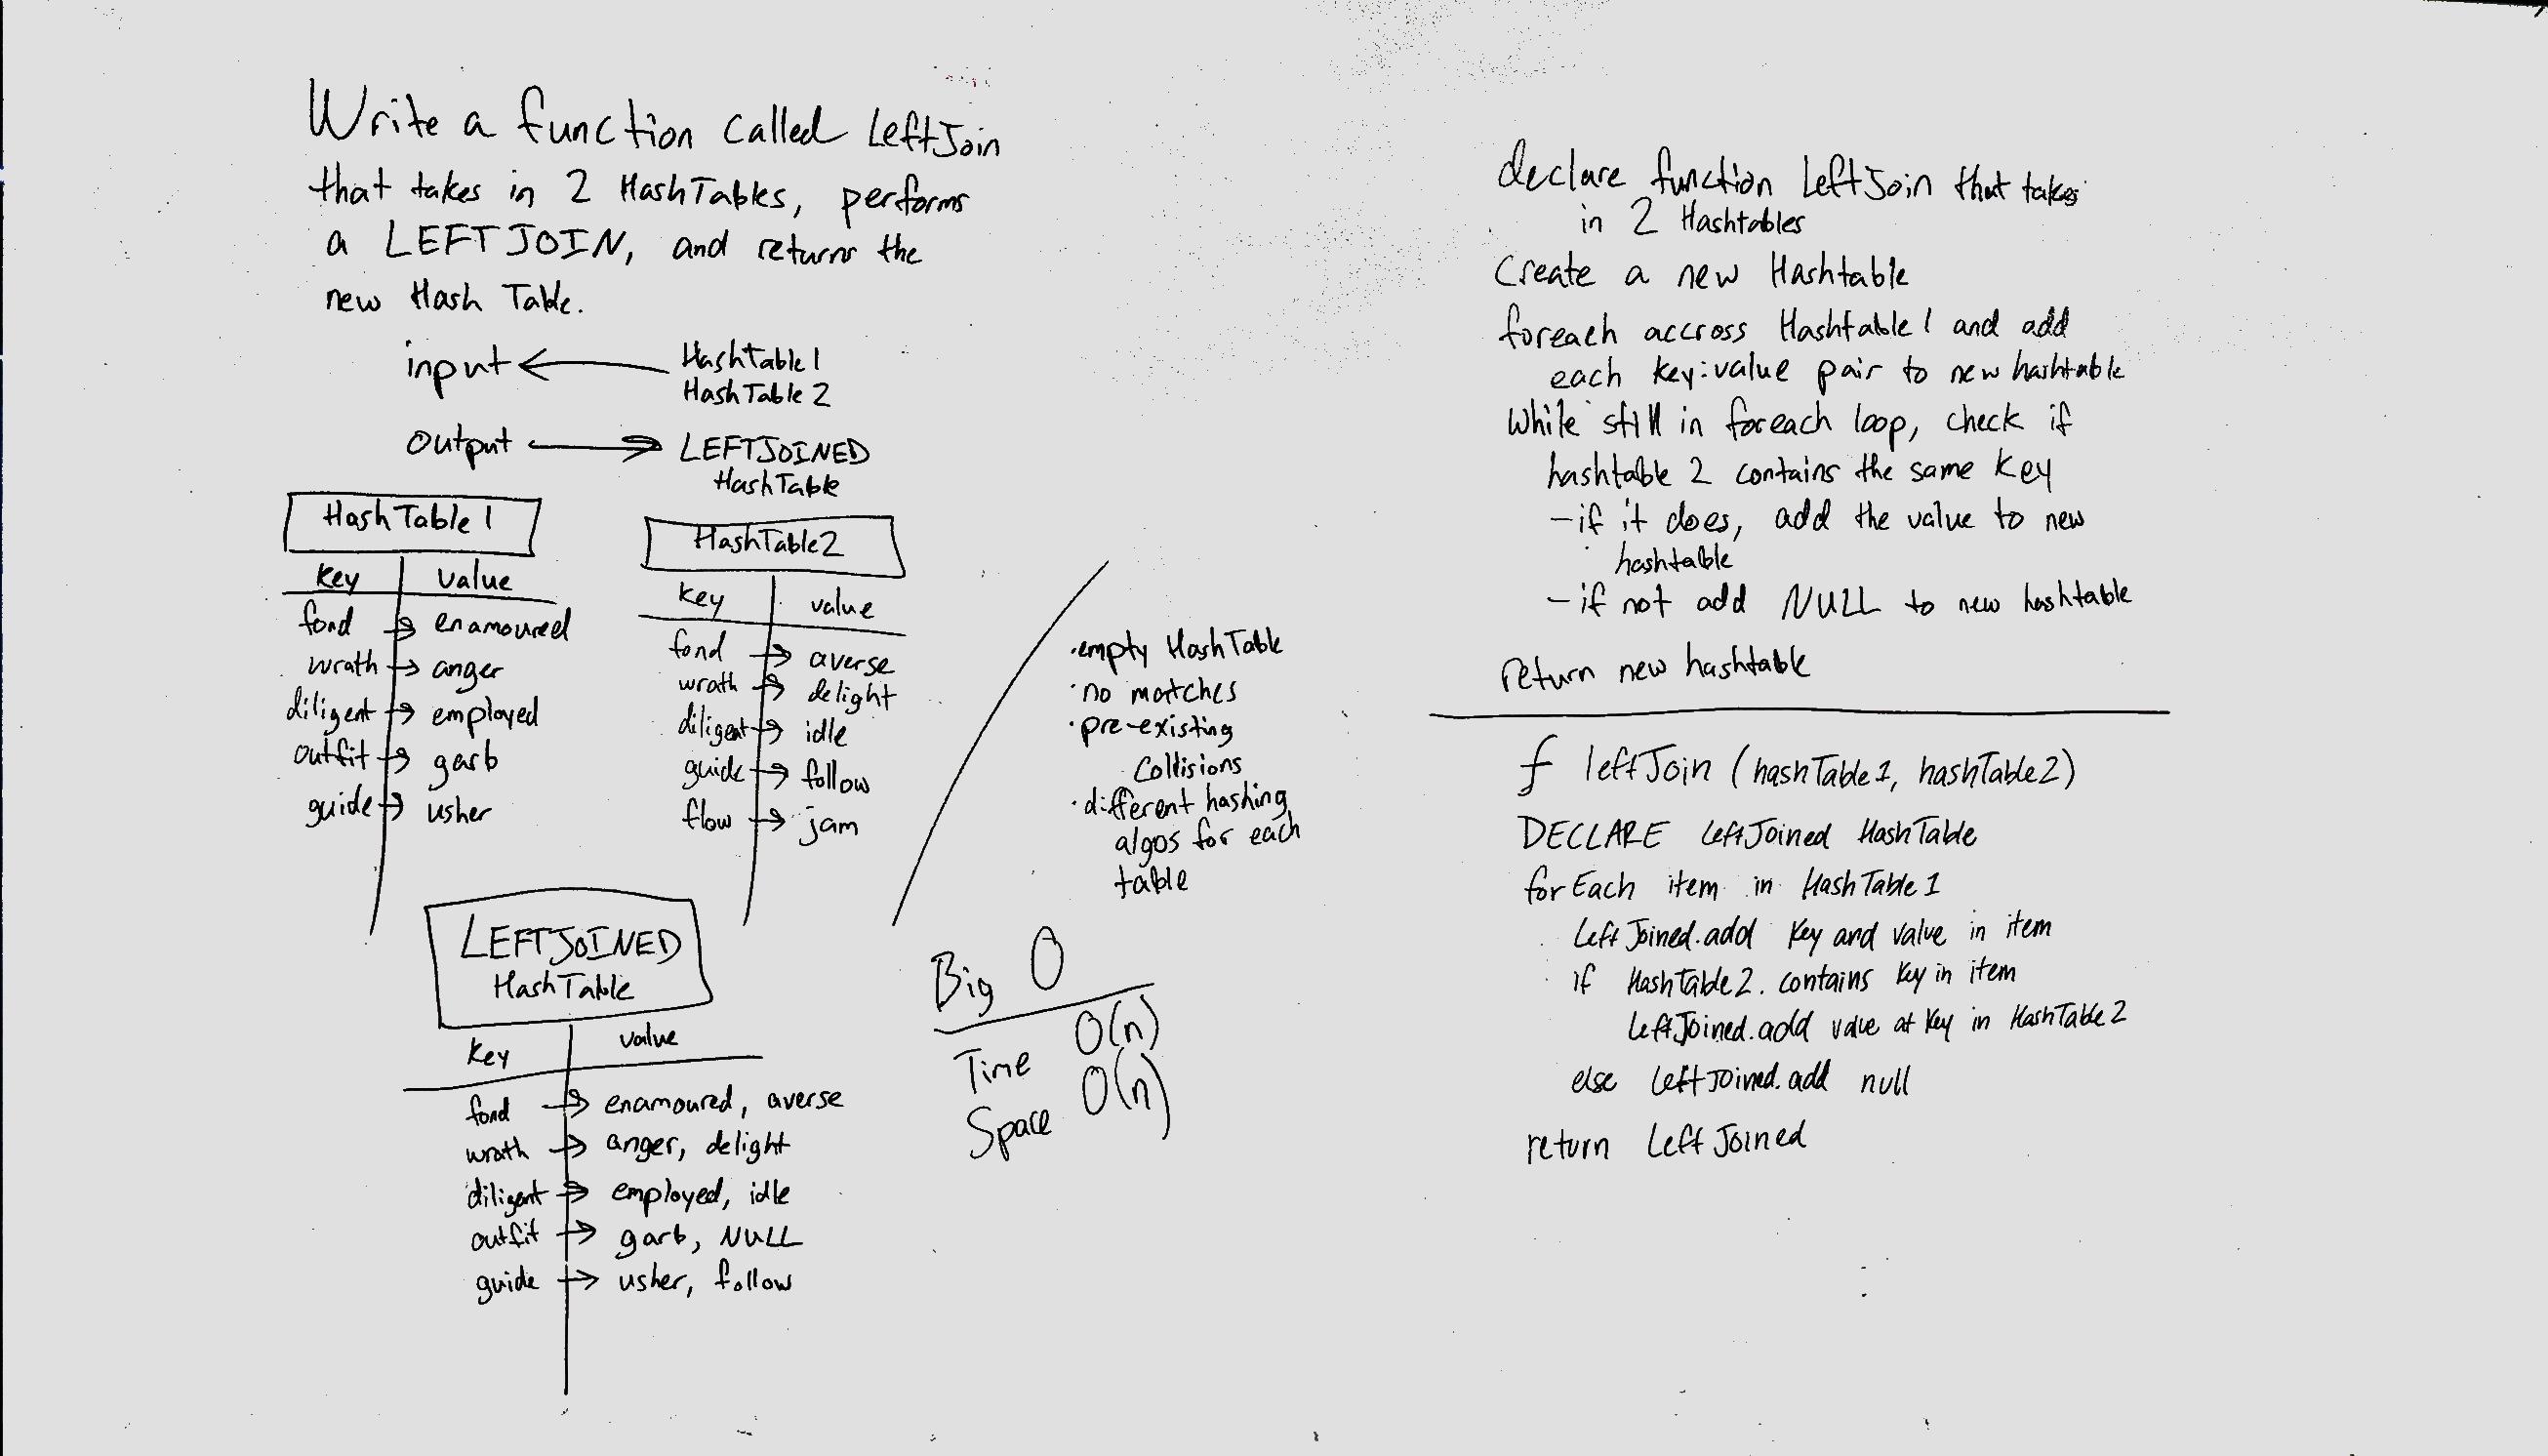 Write a function called LeftJoin
that takes in 2 HashTables, performs
a LEFT JOIN, and returns the
new Hash Table.
input ← HashTable1
HashTable2
output → LEFTJOINED
HashTable
HashTable1
key value
fond → enamoured
wrath → anger
diligent → employed
outfit → garb
guide → usher
HashTable2
key value
fond → averse
wrath → delight
diligent → idle
guide → follow
flow → jam
·empty HashTable
·no matches
·pre-existing
collisions
·different hashing
algos for each
table
LEFTJOINED
HashTable
key value
fond → enamoured, averse
wrath → anger, delight
diligent → employed, idle
outfit → garb, NULL
guide → usher, follow
Big O
Time O(n)
Space O(n)
declare function LeftJoin that takes
in 2 Hashtables
Create a new Hashtable
foreach accross Hashtable1 and add
each key:value pair to new hashtable
While still in foreach loop, check if
hashtable 2 contains the same key
-if it does, add the value to new
hashtable
-if not add NULL to new hashtable
return new hashtable
f leftJoin (hashTable1, hashTable2)
DECLARE LeftJoined HashTable
forEach item in HashTable1
LeftJoined.add key and value in item
if HashTable2.contains key in item
LeftJoined.add value at key in HashTable2
else LeftJoined.add null
return LeftJoined